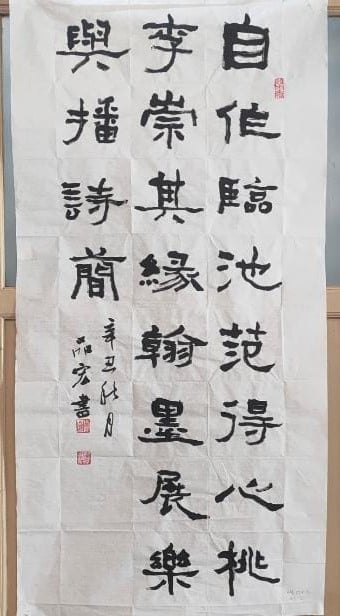 自作臨池范得心桃
李崇其緣翰墨展樂
與播詩蘭
辛丑秋月
品宏書